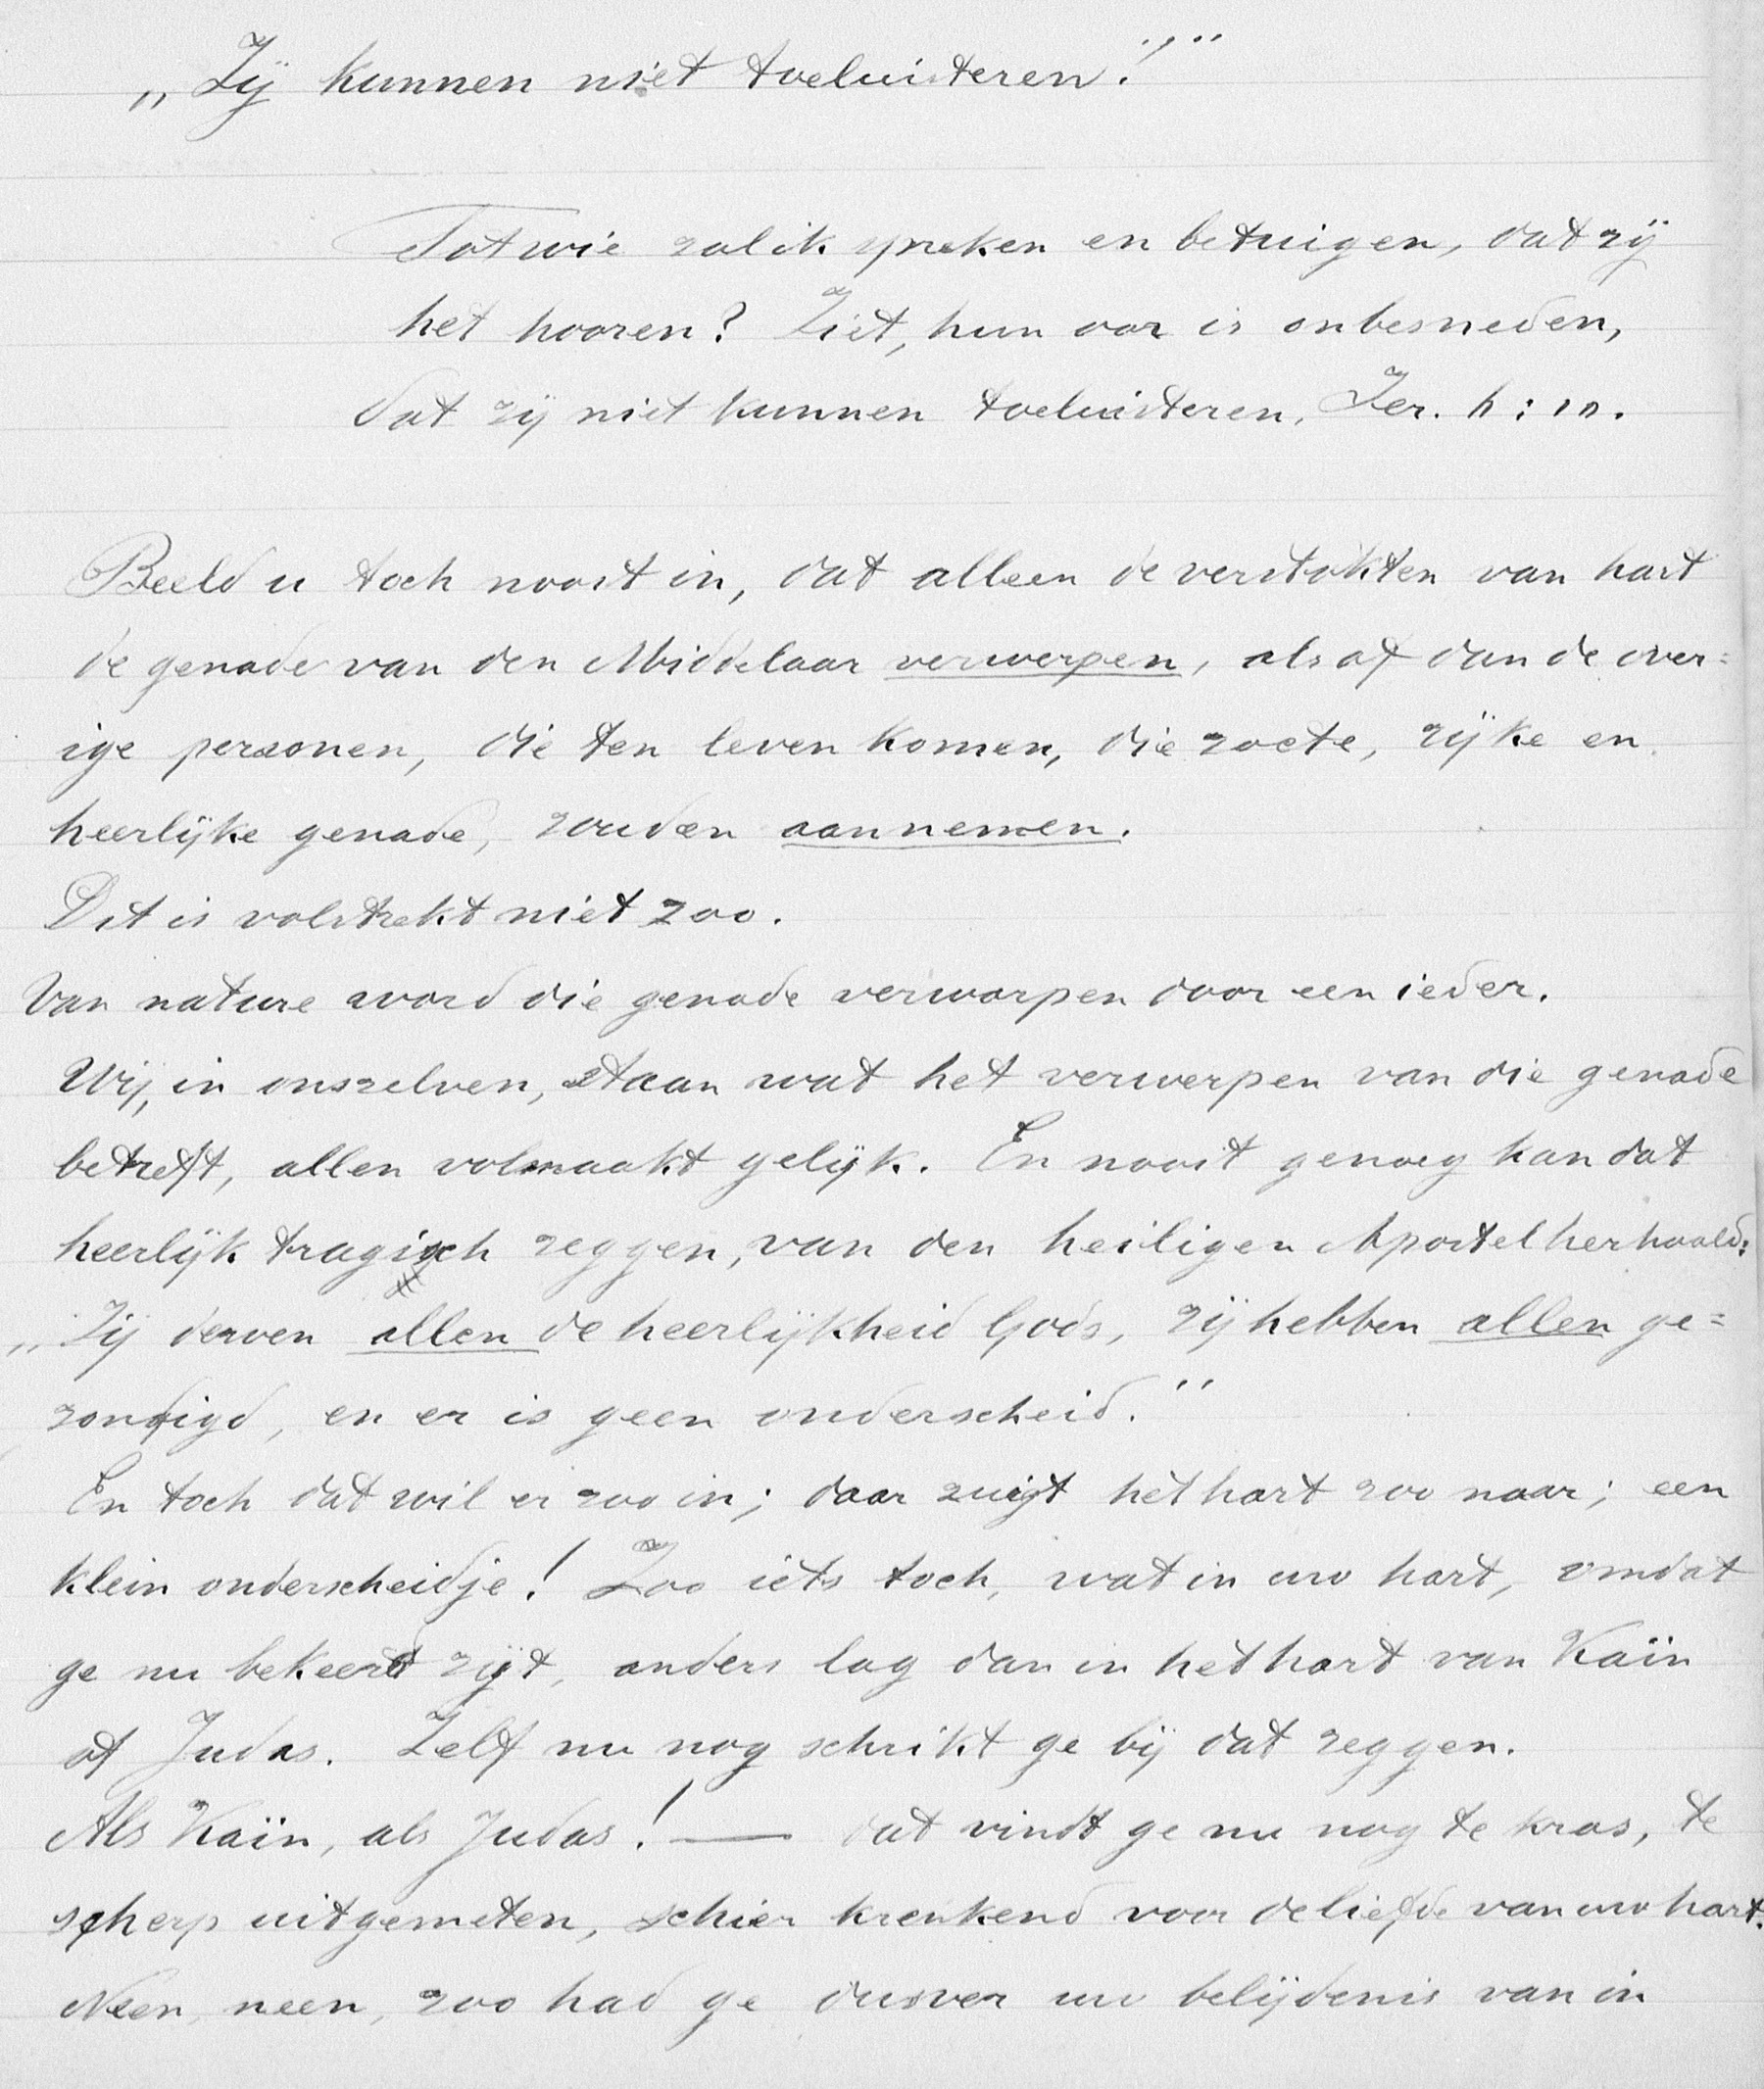 „Zij kunnen niet toeluisteren!"
Tot wie zal ik spreken en betuigen, dat zij
het hooren? Ziet, hun oor is onbesneden,
dat zij niet kunnen toeluisteren, Jer. 6:10.
Beeld u toch nooit in, dat alleen de verstokten van hart
de genade van den Middelaar verwerpen, alsof dan de over=
ige personen, die ten leven komen, die zoete, rijke en
heerlijke genade, zouden aannemen.
Dit is volstrekt niet zoo.
Van nature word die genade verworpen door een ieder.
Wij, in onszelven, staan wat het verwerpen van die genade
betreft, allen volmaakt gelijk. En nooit genoeg kan dat
heerlijk tragisch zeggen, van den heiligen Apostel herhaald:
„Zij derven allen de heerlijkheid Gods, zij hebben allen ge=
zondigd, en er is geen onderscheid."
En toch dat wil er zoo in; daar zuigt het hart zoo naar; een
klein onderscheidje! Zoo iets toch, wat in uw hart, omdat
ge nu bekeerd zijt, anders lag dan in het hart van Kaïn
of Judas. Zelf nu nog schrikt ge bij dat zeggen.
Als Kaïn, als Judas! — dat vindt ge nu nog te kras, te
scherp uitgemeten, schier krenkend voor de liefde van uw hart.
Neen, neen, zoo had ge dusver uw belijdenis van in